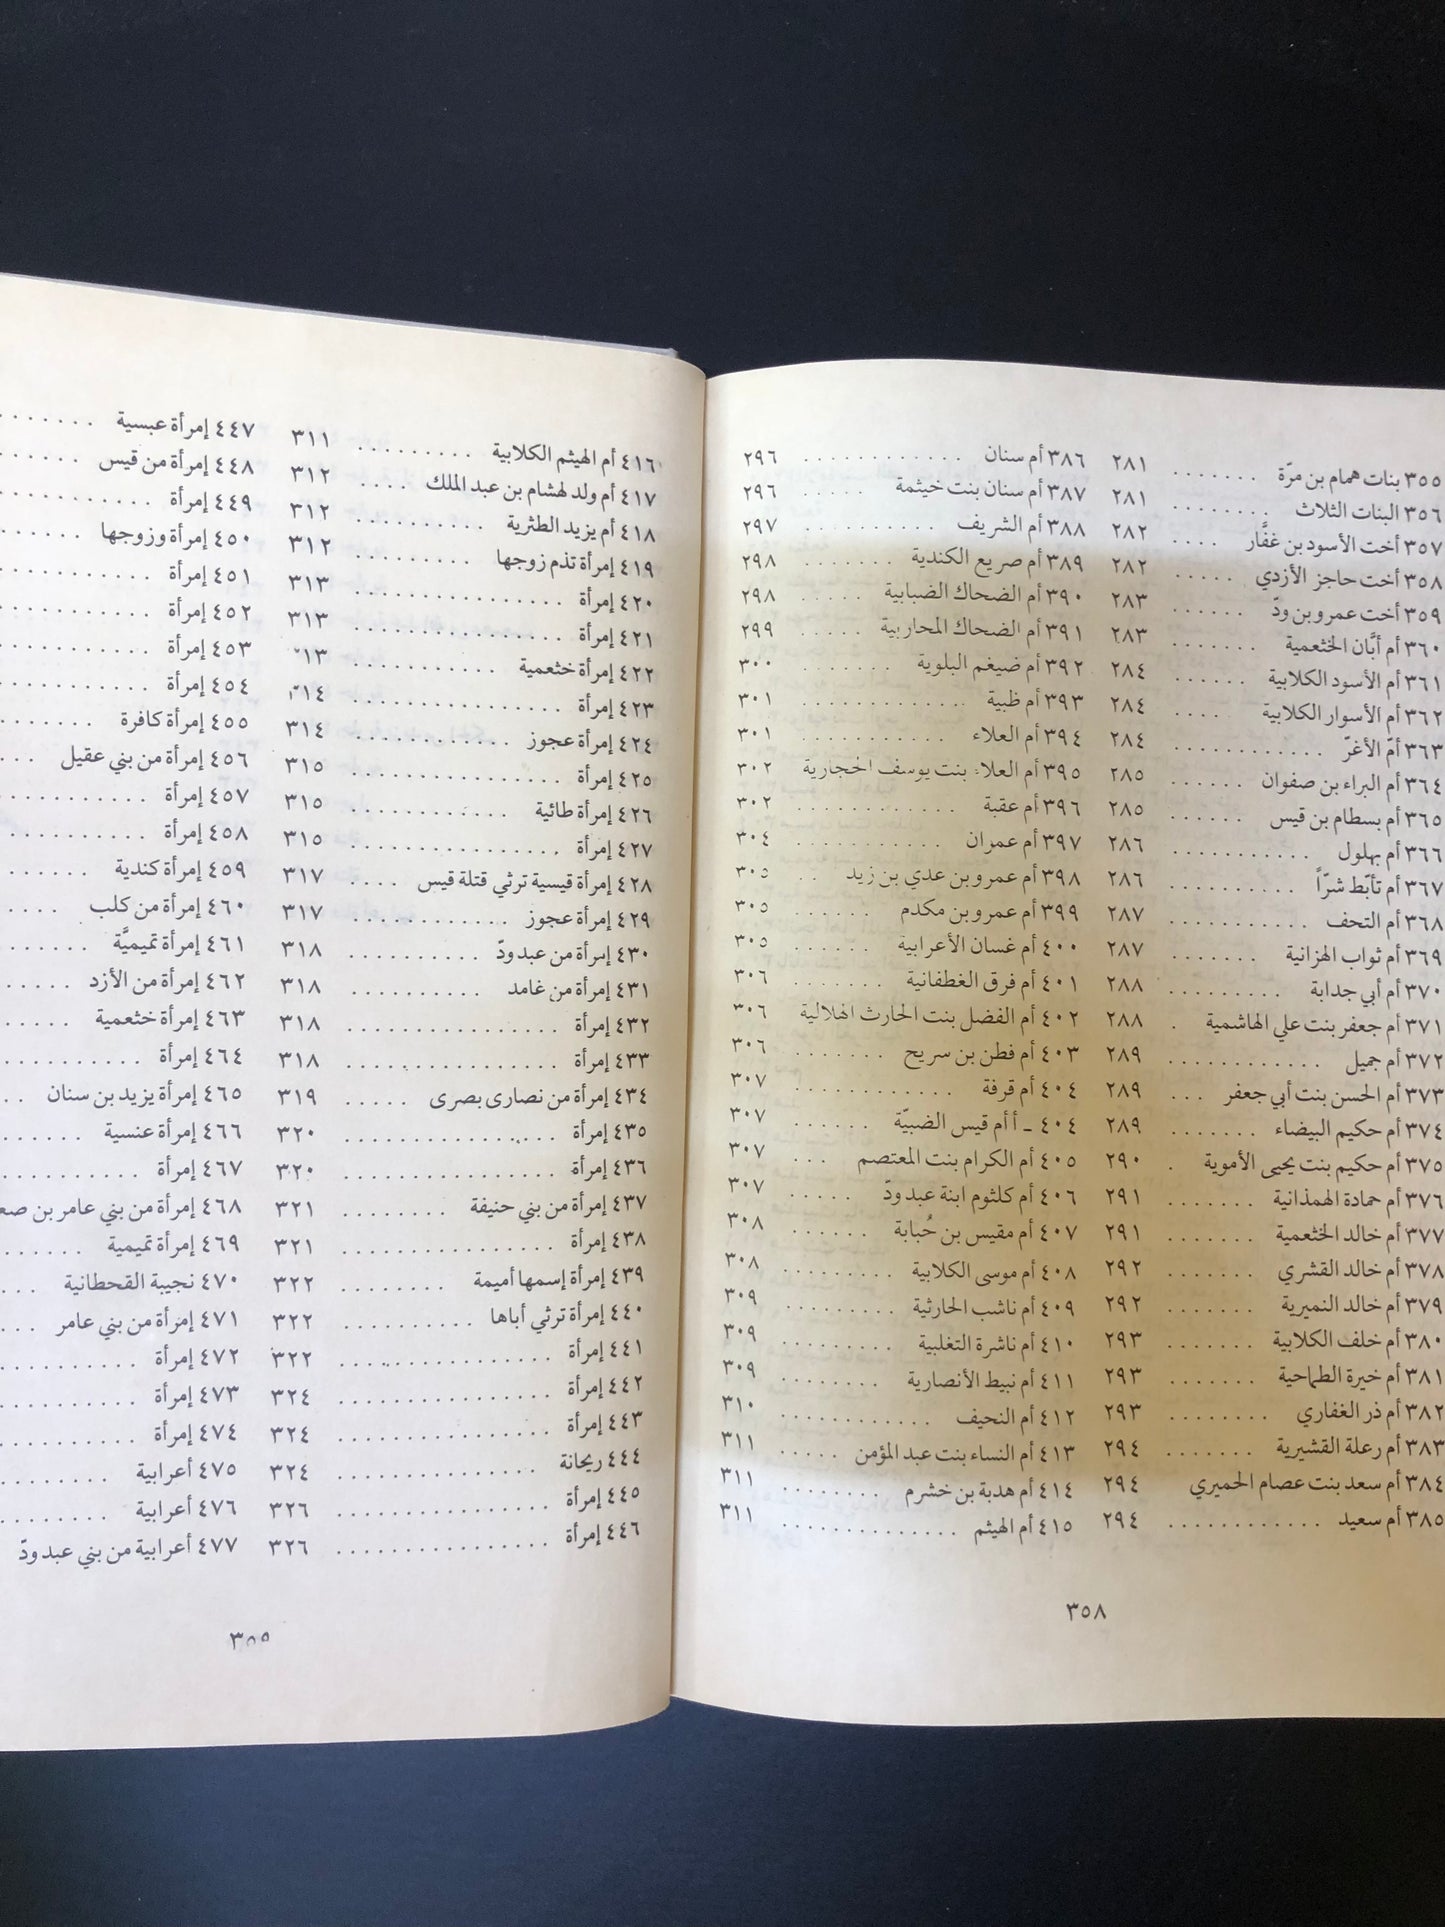 ٣٥٥ بنات همام بن مرّة . . . . . . ٢٨١
٣٥٦ البنات الثلاث . . . . . . . . ٢٨١
٣٥٧ أخت الأسود بن غفَّار . . . . ٢٨٢
٣٥٨ أخت حاجز الأزدي . . . . . ٢٨٢
٣٥٩ أخت عمرو بن ودّ . . . . . . ٢٨٣
٣٦٠ أم أبَّان الخثعمية . . . . . . . ٢٨٣
٣٦١ أم الأسود الكلابية . . . . . . ٢٨٤
٣٦٢ أم الأسوار الكلابية . . . . . ٢٨٤
٣٦٣ أمّ الأغرّ . . . . . . . . . . . . ٢٨٤
٣٦٤ أم البراء بن صفوان . . . . . . ٢٨٥
٣٦٥ أم بسطام بن قيس . . . . . . ٢٨٥
٣٦٦ أم بهلول . . . . . . . . . . . ٢٨٦
٣٦٧ أم تأبّط شرّاً . . . . . . . . . . ٢٨٦
٣٦٨ أم التحف . . . . . . . . . . . ٢٨٧
٣٦٩ أم ثواب الهزانية . . . . . . . ٢٨٧
٣٧٠ أم أبي جدابة . . . . . . . . . ٢٨٨
٣٧١ أم جعفر بنت علي الهاشمية . ٢٨٨
٣٧٢ أم جميل . . . . . . . . . . . . ٢٨٩
٣٧٣ أم الحسن بنت أبي جعفر . . . ٢٨٩
٣٧٤ أم حكيم البيضاء . . . . . . . ٢٨٩
٣٧٥ أم حكيم بنت يحيى الأموية . ٢٩٠
٣٧٦ أم حمادة الهمذانية . . . . . . ٢٩١
٣٧٧ أم خالد الخثعمية . . . . . . . ٢٩١
٣٧٨ أم خالد القشري . . . . . . . ٢٩٢
٣٧٩ أم خالد النميرية . . . . . . . ٢٩٢
٣٨٠ أم خلف الكلابية . . . . . . . ٢٩٣
٣٨١ أم خيرة الطماحية . . . . . . . ٢٩٣
٣٨٢ أم ذر الغفاري . . . . . . . . ٢٩٣
٣٨٣ أم رعلة القشيرية . . . . . . . ٢٩٤
٣٨٤ أم سعد بنت عصام الحميري ٢٩٤
٣٨٥ أم سعيد . . . . . . . . . . . . ٢٩٤
٣٨٦ أم سنان . . . . . . . . . . . . ٢٩٦
٣٨٧ أم سنان بنت خيثمة . . . . . ٢٩٦
٣٨٨ أم الشريف . . . . . . . . . . ٢٩٧
٣٨٩ أم صريع الكندية . . . . . . . ٢٩٨
٣٩٠ أم الضحاك الضبابية . . . . . ٢٩٨
٣٩١ أم الضحاك المحاربية . . . . . ٢٩٩
٣٩٢ أم ضيغم البلوية . . . . . . . ٣٠٠
٣٩٣ أم ظبية . . . . . . . . . . . . ٣٠١
٣٩٤ أم العلاء . . . . . . . . . . . ٣٠١
٣٩٥ أم العلاء بنت يوسف الحجارية ٣٠٢
٣٩٦ أم عقبة . . . . . . . . . . . . ٣٠٢
٣٩٧ أم عمران . . . . . . . . . . . ٣٠٤
٣٩٨ أم عمرو بن عدي بن زيد . . ٣٠٥
٣٩٩ أم عمرو بن مكدم . . . . . . ٣٠٥
٤٠٠ أم غسان الأعرابية . . . . . . ٣٠٥
٤٠١ أم فرق الغطفانية . . . . . . . ٣٠٦
٤٠٢ أم الفضل بنت الحارث الهلالية ٣٠٦
٤٠٣ أم فطن بن سريح . . . . . . . ٣٠٦
٤٠٤ أم قرفة . . . . . . . . . . . . ٣٠٧
٤٠٤ ــ أ أم قيس الضبيّة . . . . . . ٣٠٧
٤٠٥ أم الكرام بنت المعتصم . . . ٣٠٧
٤٠٦ أم كلثوم ابنة عبد ودّ . . . . . ٣٠٧
٤٠٧ أم مقيس بن حُبابة . . . . . . ٣٠٨
٤٠٨ أم موسى الكلابية . . . . . . . ٣٠٨
٤٠٩ أم ناشب الحارثية . . . . . . . ٣٠٩
٤١٠ أم ناشرة التغلبية . . . . . . . ٣٠٩
٤١١ أم نبيط الأنصارية . . . . . . . ٣٠٩
٤١٢ أم النحيف . . . . . . . . . . ٣١٠
٤١٣ أم النساء بنت عبد المؤمن . . . . ٣١١
٤١٤ أم هدبة بن خشرم . . . . . . . ٣١١
٤١٥ أم الهيثم . . . . . . . . . . . . ٣١١
٣٥٨
٤١٦ أم الهيثم الكلابية . . . . . . . . ٣١١
٤١٧ أم ولد لهشام بن عبد الملك . . . . ٣١٢
٤١٨ أم يزيد الطثرية . . . . . . . . . ٣١٢
٤١٩ إمرأة تذم زوجها . . . . . . . . ٣١٢
٤٢٠ إمرأة . . . . . . . . . . . . . . ٣١٣
٤٢١ إمرأة . . . . . . . . . . . . . . ٣١٣
٤٢٢ إمرأة خثعمية . . . . . . . . . . ١٣
٤٢٣ إمرأة . . . . . . . . . . . . . . ٣١٤
٤٢٤ إمرأة عجوز . . . . . . . . . . . ٣١٤
٤٢٥ إمرأة . . . . . . . . . . . . . . ٣١٥
٤٢٦ إمرأة طائية . . . . . . . . . . . ٣١٥
٤٢٧ إمرأة . . . . . . . . . . . . . . ٣١٥
٤٢٨ إمرأة قيسية ترثي قتلة قيس . . . . ٣١٧
٤٢٩ إمرأة عجوز . . . . . . . . . . . ٣١٧
٤٣٠ إمرأة من عبد ودّ . . . . . . . . . ٣١٨
٤٣١ إمرأة من غامد . . . . . . . . . . ٣١٨
٤٣٢ إمرأة . . . . . . . . . . . . . . ٣١٨
٤٣٣ إمرأة . . . . . . . . . . . . . . ٣١٨
٤٣٤ إمرأة من نصارى بصرى . . . . . ٣١٩
٤٣٥ إمرأة . . . . . . . . . . . . . . ٣٢٠
٤٣٦ إمرأة . . . . . . . . . . . . . . ٣٢٠
٤٣٧ إمرأة من بني حنيفة . . . . . . . ٣٢١
٤٣٨ إمرأة . . . . . . . . . . . . . . ٣٢١
٤٣٩ إمرأة إسمها أميمة . . . . . . . . ٣٢٢
٤٤٠ إمرأة ترثي أباها . . . . . . . . . ٣٢٢
٤٤١ إمرأة . . . . . . . . . . . . . . ٣٢٢
٤٤٢ إمرأة . . . . . . . . . . . . . . ٣٢٤
٤٤٣ إمرأة . . . . . . . . . . . . . . ٣٢٤
٤٤٤ ريحانة . . . . . . . . . . . . . ٣٢٤
٤٤٥ إمرأة . . . . . . . . . . . . . . ٣٢٦
٤٤٦ إمرأة . . . . . . . . . . . . . . ٣٢٦
٤٤٧ إمرأة عبسية . . . . . . .
٤٤٨ إمرأة من قيس . . . . . .
٤٤٩ إمرأة . . . . . . . . . .
٤٥٠ إمرأة وزوجها . . . . . .
٤٥١ إمرأة . . . . . . . . . .
٤٥٢ إمرأة . . . . . . . . . .
٤٥٣ إمرأة . . . . . . . . . .
٤٥٤ إمرأة . . . . . . . . . .
٤٥٥ إمرأة كافرة . . . . . . .
٤٥٦ إمرأة من بني عقيل . . .
٤٥٧ إمرأة . . . . . . . . . .
٤٥٨ إمرأة . . . . . . . . . .
٤٥٩ إمرأة كندية . . . . . . .
٤٦٠ إمرأة من كلب . . . . .
٤٦١ إمرأة تميميَّة . . . . . . .
٤٦٢ إمرأة من الأزد . . . . .
٤٦٣ إمرأة خثعمية . . . . . .
٤٦٤ إمرأة . . . . . . . . . .
٤٦٥ إمرأة يزيد بن سنان . . .
٤٦٦ إمرأة عنسية . . . . . . .
٤٦٧ إمرأة . . . . . . . . . .
٤٦٨ إمرأة من بني عامر بن
٤٦٩ إمرأة تميمية . . . . . . .
٤٧٠ نجيبة القحطانية . . . .
٤٧١ إمرأة من بني عامر . . .
٤٧٢ إمرأة . . . . . . . . . .
٤٧٣ إمرأة . . . . . . . . . .
٤٧٤ إمرأة . . . . . . . . . .
٤٧٥ أعرابية . . . . . . . . .
٤٧٦ أعرابية . . . . . . . . .
٤٧٧ أعرابية من بني عبد ودّ
٣٥٩